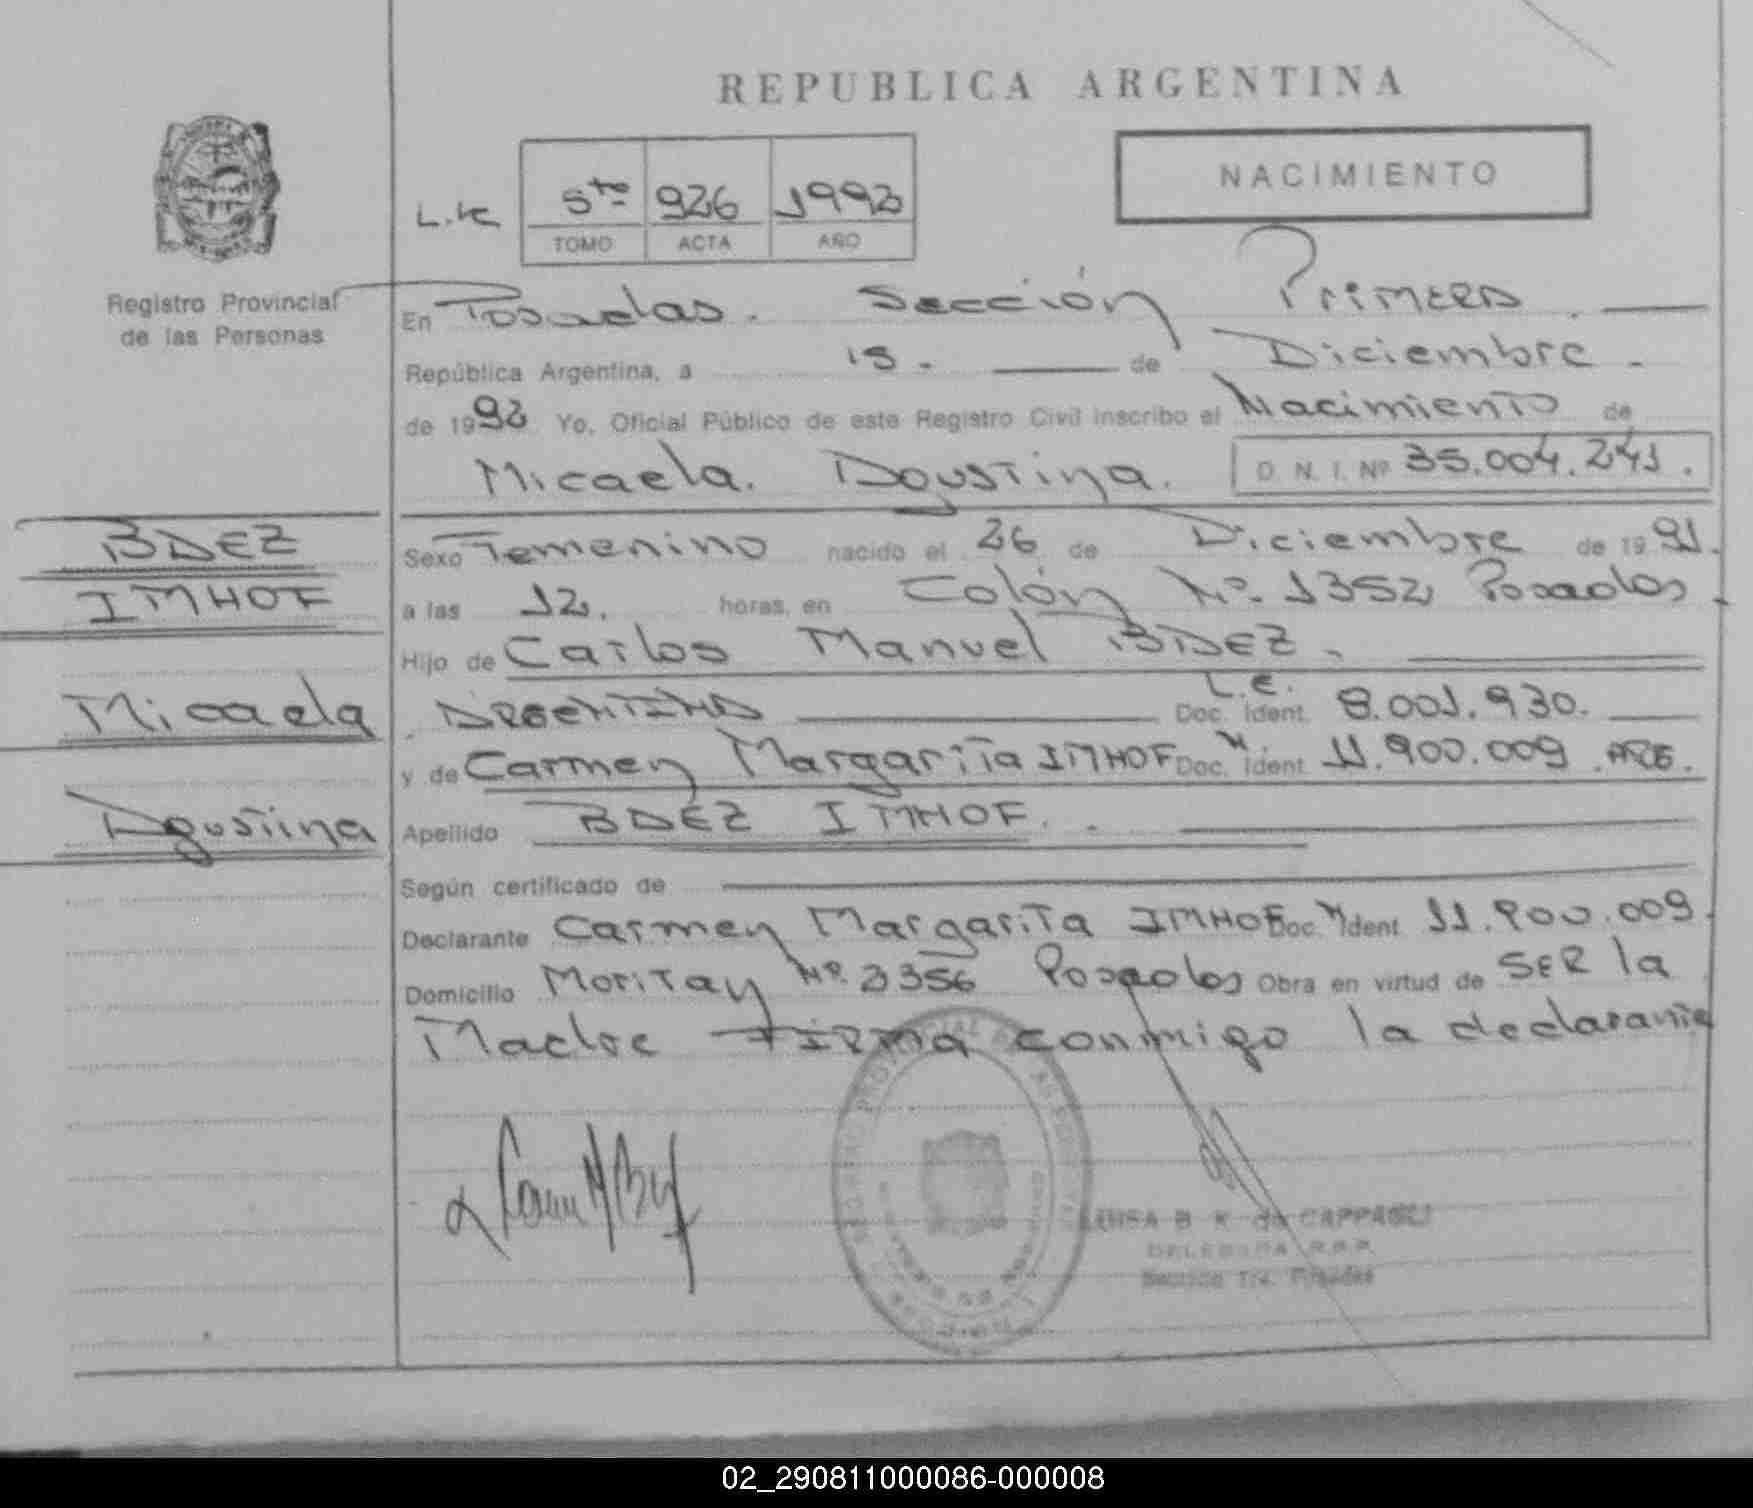 REPUBLICA ARGENTINA
NACIMIENTO
L.K 5to 926 1992
TOMO ACTA AÑO
Registro Provincial
de las Personas
En Posadas. Sección Primera.
República Argentina, a 15. de Diciembre.
de 1992 Yo, Oficial Público de este Registro Civil inscribo el Nacimiento de
Micaela. Agustina. D. N. I. Nº 35.004.241.
BAEZ
IMHOF
Micaela
Agustina
Sexo Femenino nacido el 26 de Diciembre de 1991.
a las 12. horas, en Colón Nº. 1352 Posadas.
Hijo de Carlos Manuel BAEZ.
Argentino L.E. Doc. Ident. 8.001.930.
y de Carmen Margarita IMHOF Doc. Ident. 11.900.009 .ARG.
Apellido BAEZ IMHOF.
Según certificado de
Declarante Carmen Margarita IMHOF Doc. Ident. 11.900.009.
Domicilio Moritan Nº. 2356 Posadas Obra en virtud de SER la
Madre Firma conmigo la declarante
LUISA B. K. de CAPPAGLI
DELEGADA R.P.P.
02_290811000086-000008